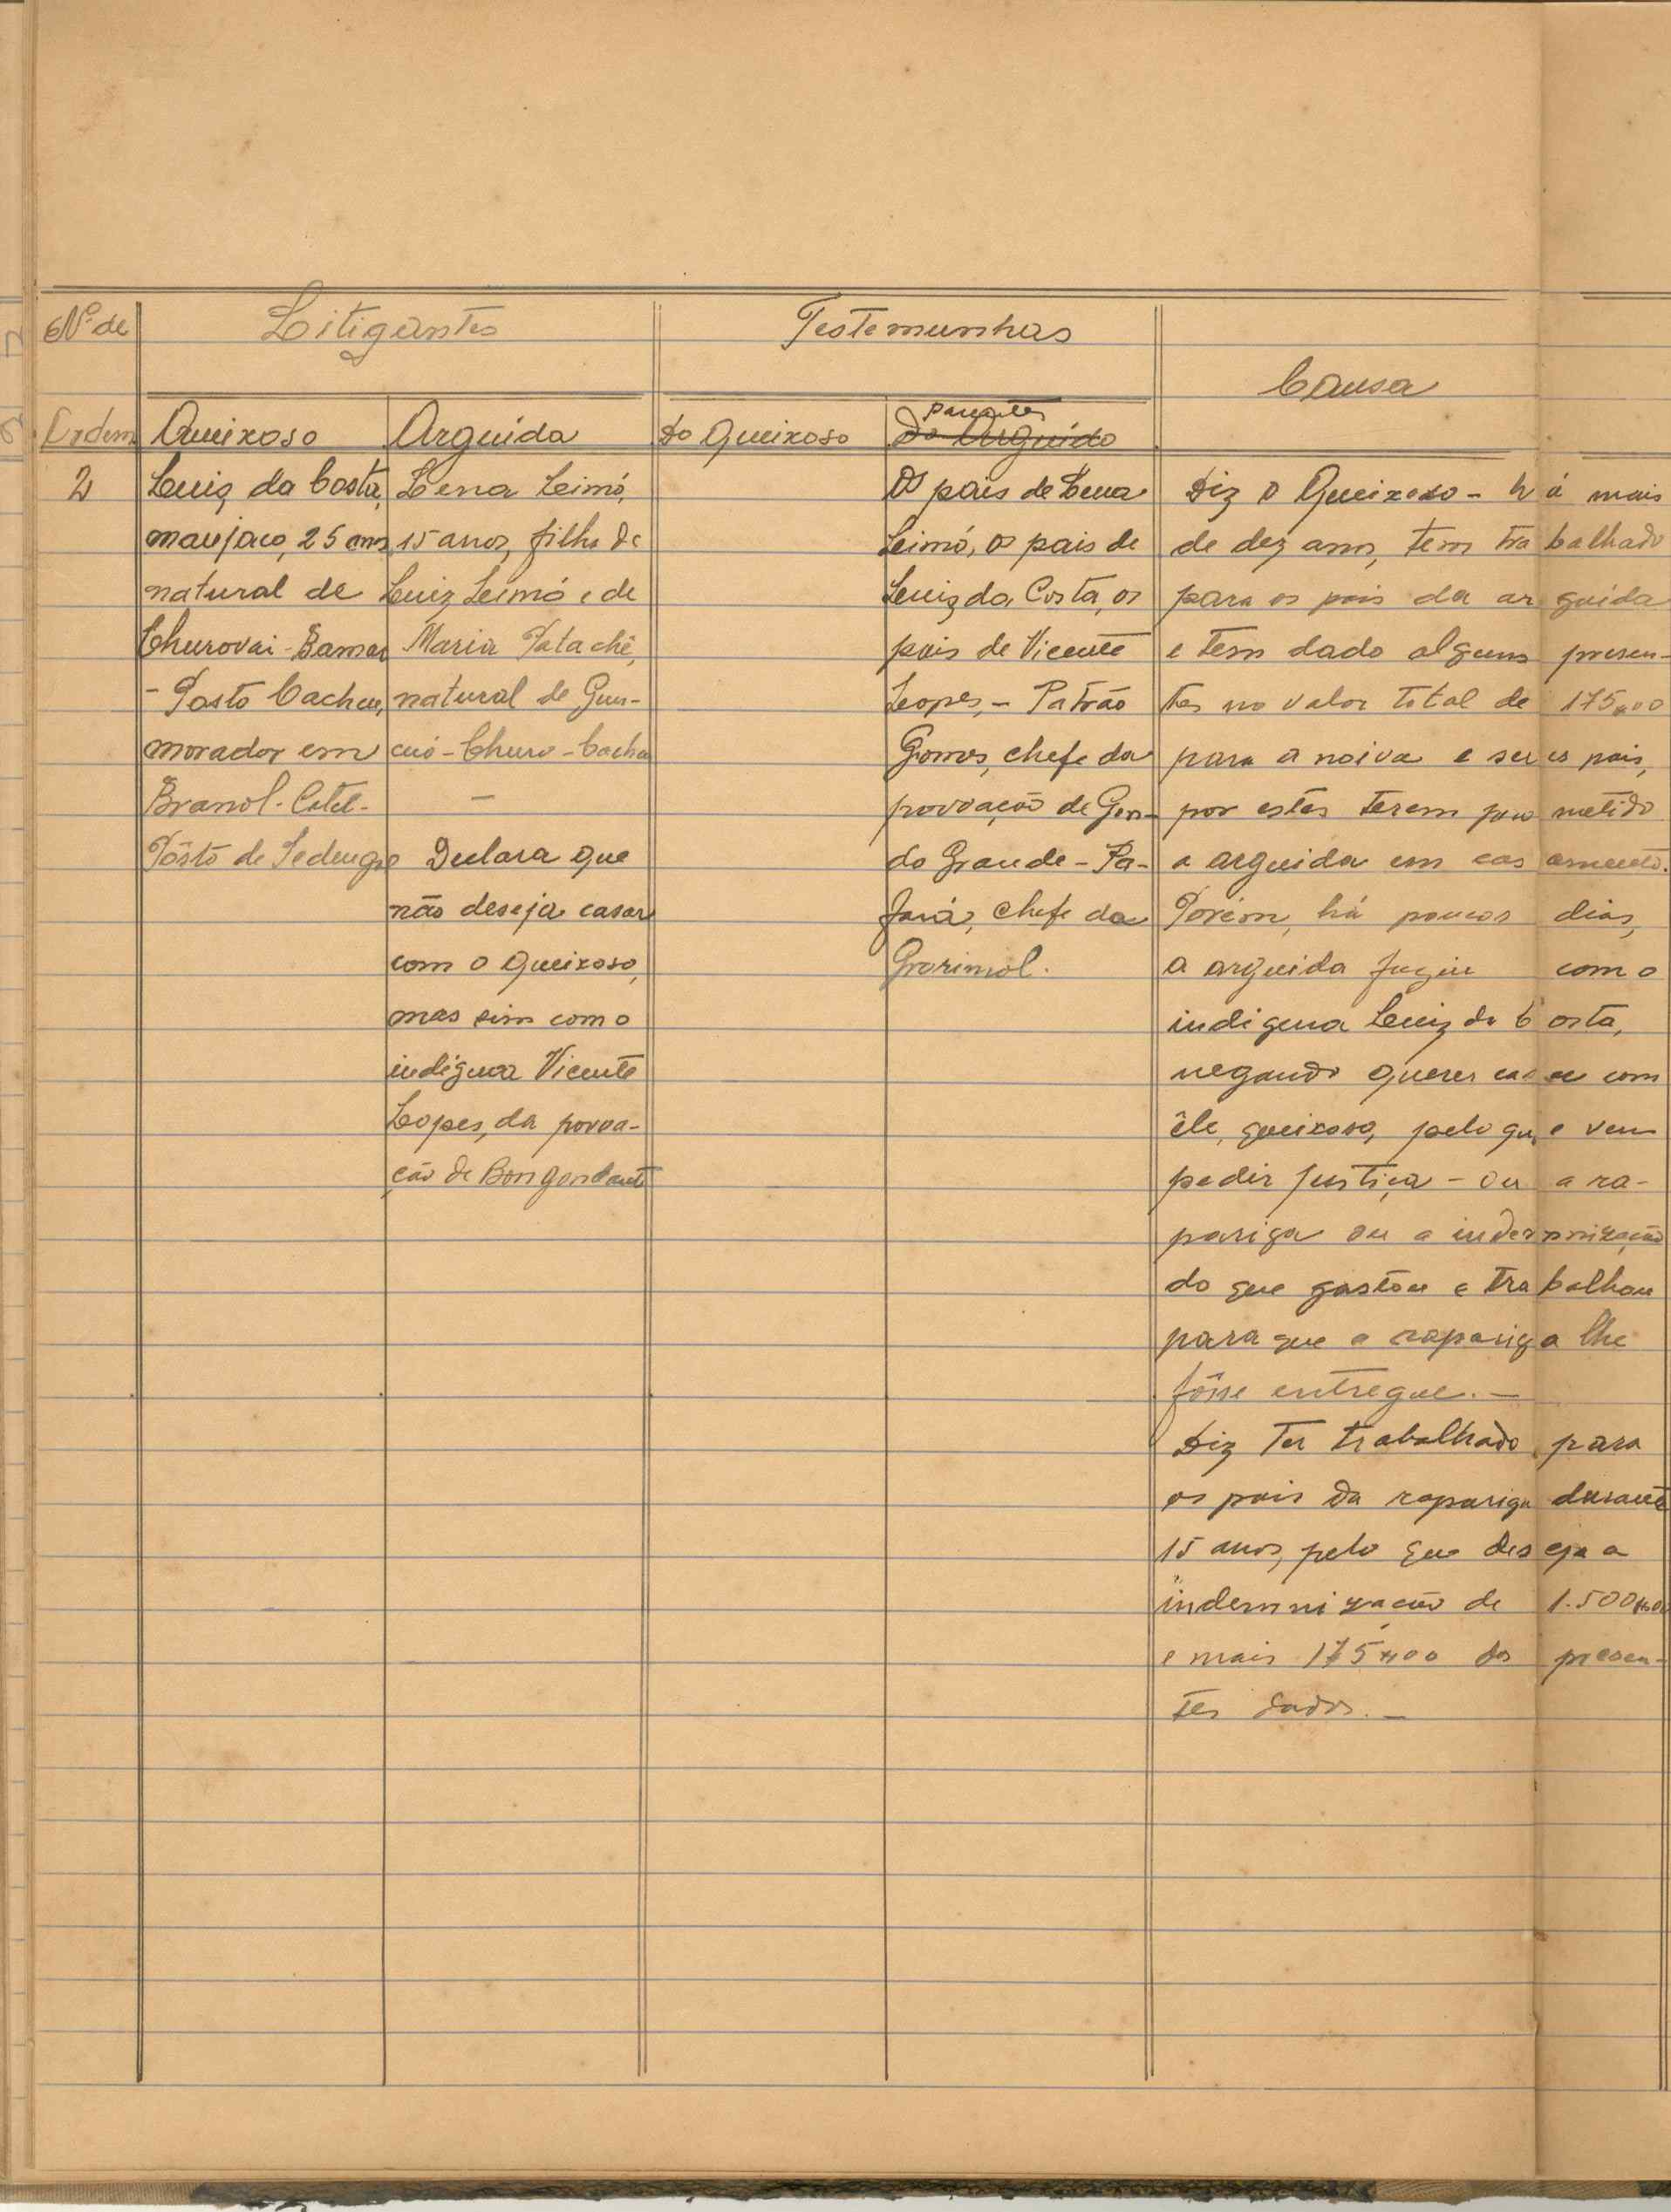 Nº de
Ordem
Litigantes
Testemunhas
Causa
Queixoso
Arguida
Do Queixoso
parentes
Do Arguido
2
Luiz da Costa,
manjaco, 25 anos
natural de
Churovai - Bamar
- Posto Cacheu,
morador em
Branol - Catel -
Pôsto de Sedengo
Lena Leimó,
15 anos, filha de
Luiz Leimó e de
Maria Patachê,
natural de Gun-
cuó - Churo - Cacheu
—
Declara que
não deseja casar
com o queixoso,
mas sim com o
indígena Vicente
Lopes, da povoa-
ção de Bongondante
Os pais de Lena
Leimó, os pais de
Luiz da Costa, os
pais de Vicente
Lopes, - Patrão
Gomes, chefe da
povoação de Gon-
do Grande - Pa-
fará, chefe da
Grorimol.
Diz o Queixoso - há mais
de dez anos, tem trabalhado
para os pais da arguida
e tem dado alguns presen-
tes no valor total de 175$00
para a noiva e seus pais,
por estes terem prometido
a arguida em casamento.
Porém, há poucos dias,
a arguida fugiu com o
indigena Luiz da Costa,
negando querer casar com
êle, queixoso, pelo que vem
pedir justiça - ou a ra-
pariga ou a indemnização
do que gastou e trabalhou
para que a rapariga lhe
fôsse entregue. —
Diz ter trabalhado para
os pais da rapariga durante
15 anos, pelo que deseja a
indemnização de 1.500$00
e mais 175$00 dos presen-
tes dados. —